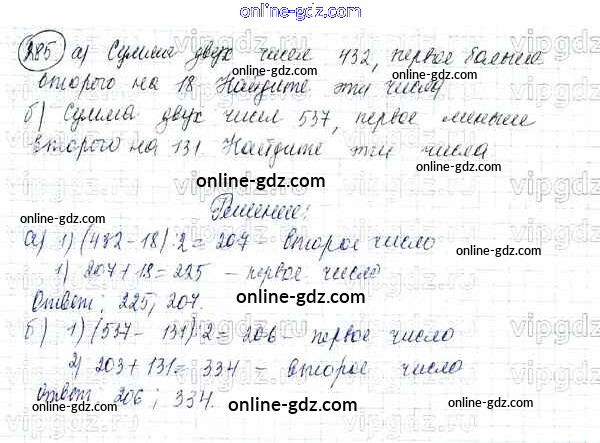 online-gdz.com
285 а) Сумма двух чисел 432, первое больше
второго на 18 Найдите эти числа
online-gdz.com
б) Сумма двух чисел 537, первое меньше
online-gdz.com online-gdz.com
второго на 131. Найдите эти числа
online-gdz.com
online-gdz.com
Решение:
online-gdz.com
а) 1) (432-18):2=207 - второе число
online-gdz.com
1) 207+18=225 - первое число
online-gdz.com
Ответ: 225, 207.
б) 1) (537-131):2=206 - первое число
online-gdz.com
2) 203+131=334 - второе число
online-gdz.com
Ответ: 206; 334.
online-gdz.com
online-gdz.com